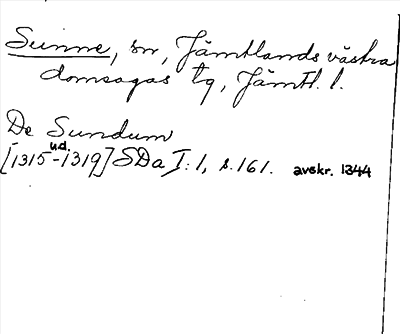 Sunne, sn, Jämtlands västra
domsagas tg, Jämtl. l.
De Sundum
[1315 ud.-1319] SDa I:1, s.161. avskr. 1344